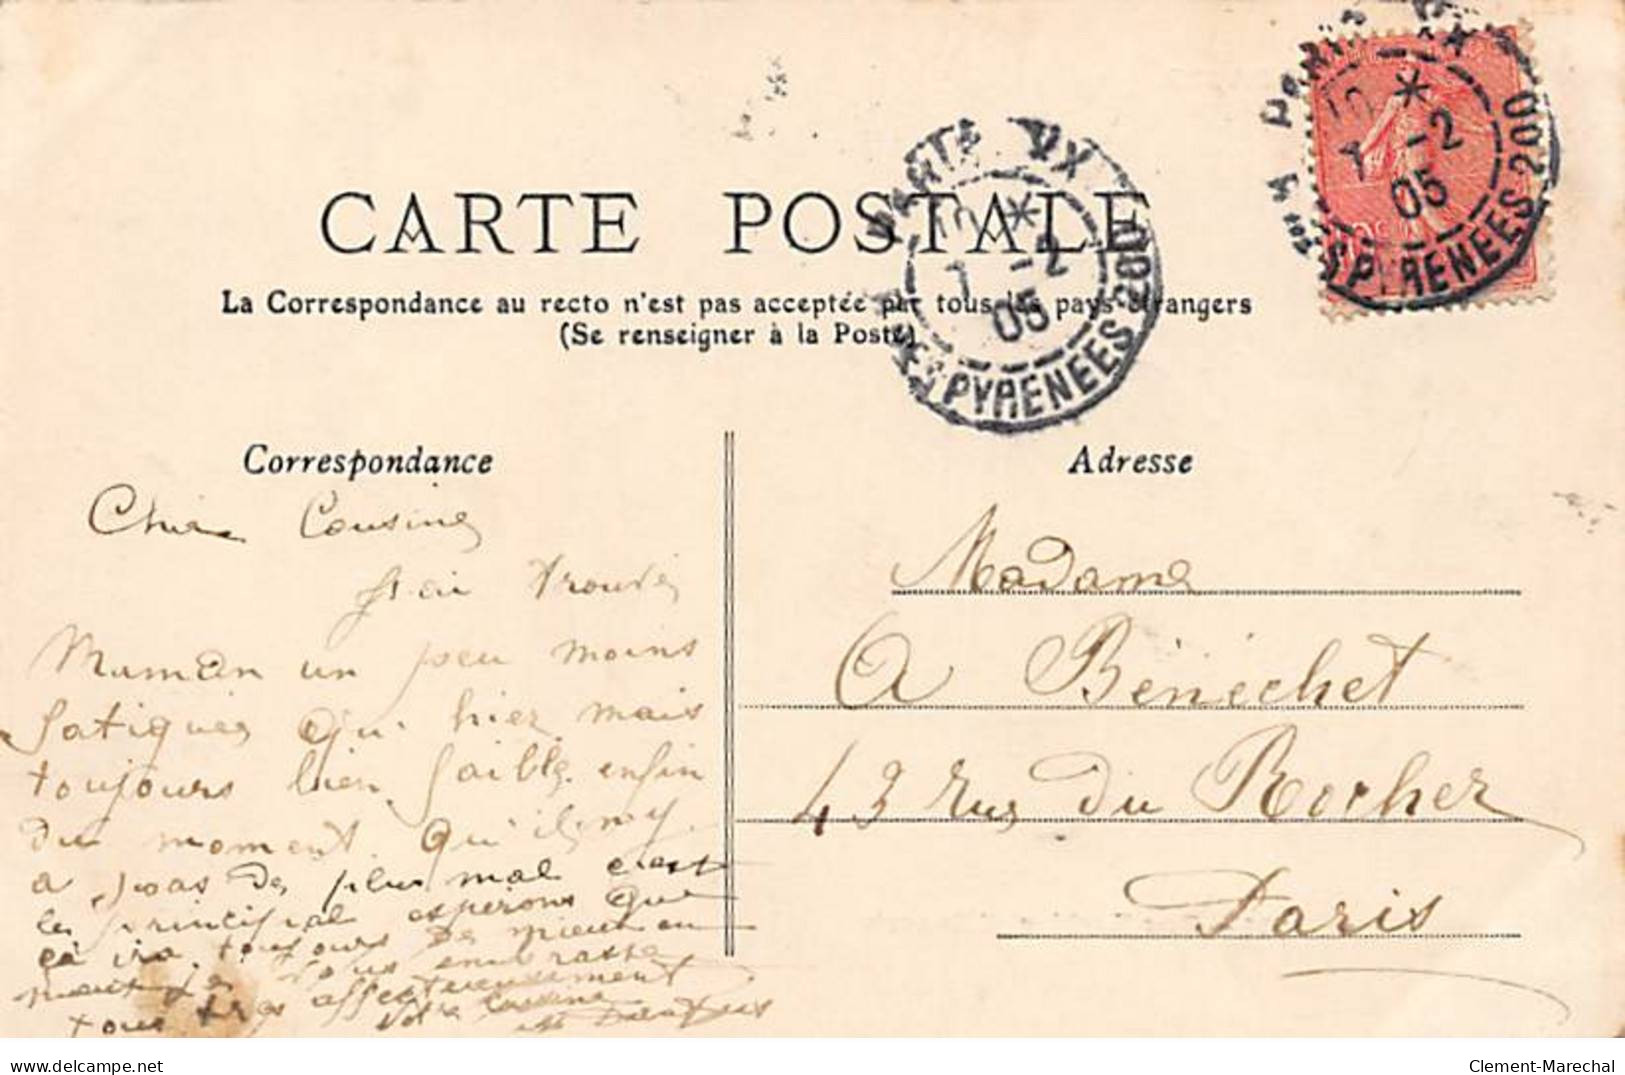 CARTE POSTALE
La Correspondance au recto n'est pas acceptée par tous les pays étrangers
(Se renseigner à la Poste)
PARIS XX
10 *
7 -2
05
R. DES PYRENEES 200
PARIS XX
10 *
7 -2
05
R. DES PYRENEES 200
Correspondance
Chère Cousine
J'ai trouvé
Maman un peu moins
fatiguée qu'hier mais
toujours bien faible, enfin
du moment qu'il n'y
a pas de plus mal c'est
le principal espérons que
ça ira toujours de mieux en
mieux je vous embrasse
tous très affectueusement
Votre cousine
Adresse
Madame
A Bénéchet
43 rue du Rocher
Paris
delcampe.net
Clement-Marechal